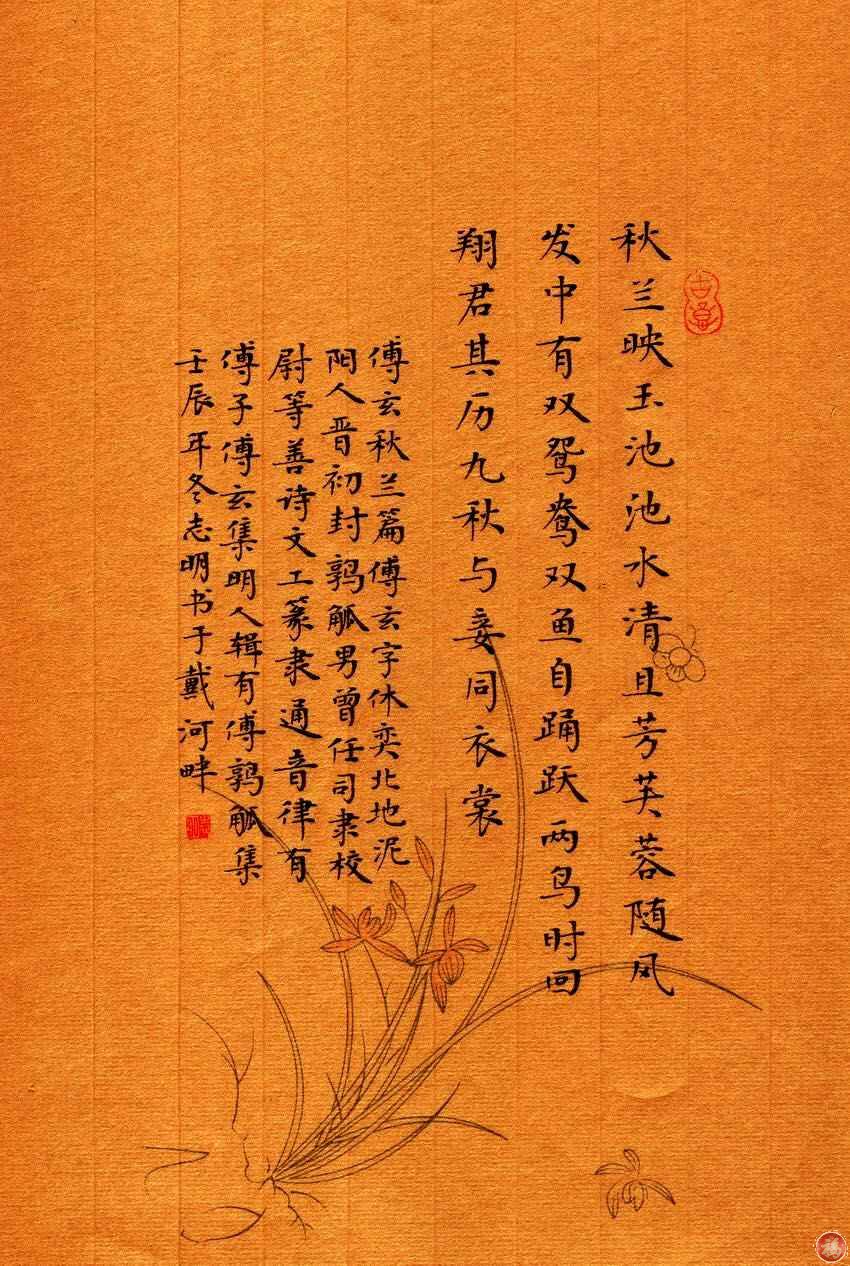 秋兰映玉池池水清且芳芙蓉随风
发中有双鸳鸯双鱼自踊跃两鸟时回
翔君其历九秋与妾同衣裳
傅玄秋兰篇傅玄字休奕北地泥
阳人晋初封鹑觚男曾任司隶校
尉等善诗文工篆隶通音律有
傅子傅玄集明人辑有傅鹑觚集
壬辰年冬志明书于戴河畔
福